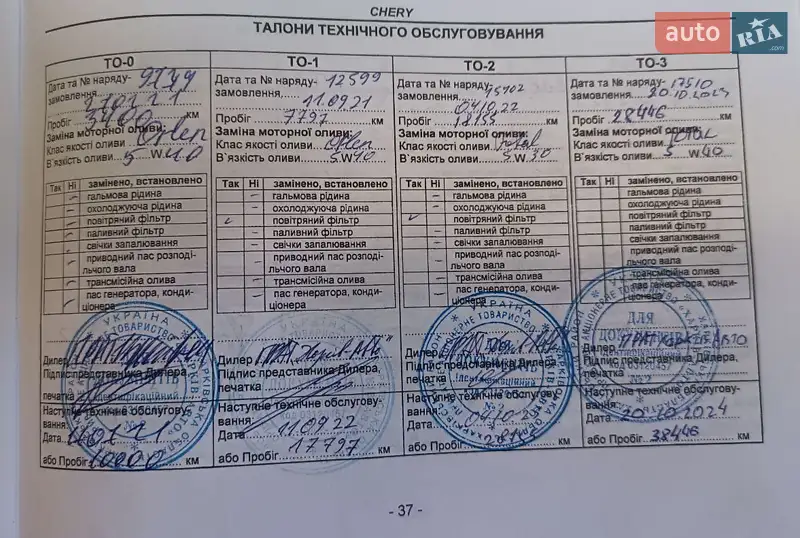 CHERY
ТАЛОНИ ТЕХНІЧНОГО ОБСЛУГОВУВАННЯ
auto RIA .com
ТО-0
Дата та № наряду- 9779
замовлення
Пробіг 3400 км
Заміна моторної оливи:
Клас якості оливи
В`язкість оливи 5 W 40
Так Ні замінено, встановлено
гальмова рідина
охолоджуюча рідина
повітряний фільтр
паливний фільтр
свічки запалювання
приводний пас розподі-
льчого вала
трансмісійна олива
пас генератора, конди-
ціонера
Дилер
Підпис представника Дилера,
печатка
Наступне технічне обслугову-
вання:
Дата
або Пробіг 10000 км
ТО-1
Дата та № наряду- 12599
замовлення 11.09.21
Пробіг 7797 км
Заміна моторної оливи:
Клас якості оливи
В`язкість оливи 5 W 40
Так Ні замінено, встановлено
гальмова рідина
охолоджуюча рідина
повітряний фільтр
паливний фільтр
свічки запалювання
приводний пас розподі-
льчого вала
трансмісійна олива
пас генератора, конди-
ціонера
Дилер
Підпис представника Дилера,
печатка
Наступне технічне обслугову-
вання:
Дата 11.09.22
або Пробіг 17797 км
ТО-2
Дата та № наряду-
замовлення 04.10.22
Пробіг км
Заміна моторної оливи:
Клас якості оливи Total
В`язкість оливи 5 W 30
Так Ні замінено, встановлено
гальмова рідина
охолоджуюча рідина
повітряний фільтр
паливний фільтр
свічки запалювання
приводний пас розподі-
льчого вала
трансмісійна олива
пас генератора, конди-
ціонера
УКРАЇНА
Дилер
Підпис представника Дилера,
печатка
Наступне технічне обслугову-
вання:
Дата
або Пробіг км
ТО-3
Дата та № наряду- 17510
замовлення 20.10.2023
Пробіг 28446 км
Заміна моторної оливи:
Клас якості оливи TOTAL
В`язкість оливи 5 W 40
Так Ні замінено, встановлено
гальмова рідина
охолоджуюча рідина
повітряний фільтр
паливний фільтр
свічки запалювання
приводний пас розподі-
льчого вала
трансмісійна олива
пас генератора, конди-
ціонера
ДЛЯ
Дилер
Підпис представника Дилера,
печатка
Наступне технічне обслугову-
вання:
Дата 20.10.2024
або Пробіг 38446 км
- 37 -